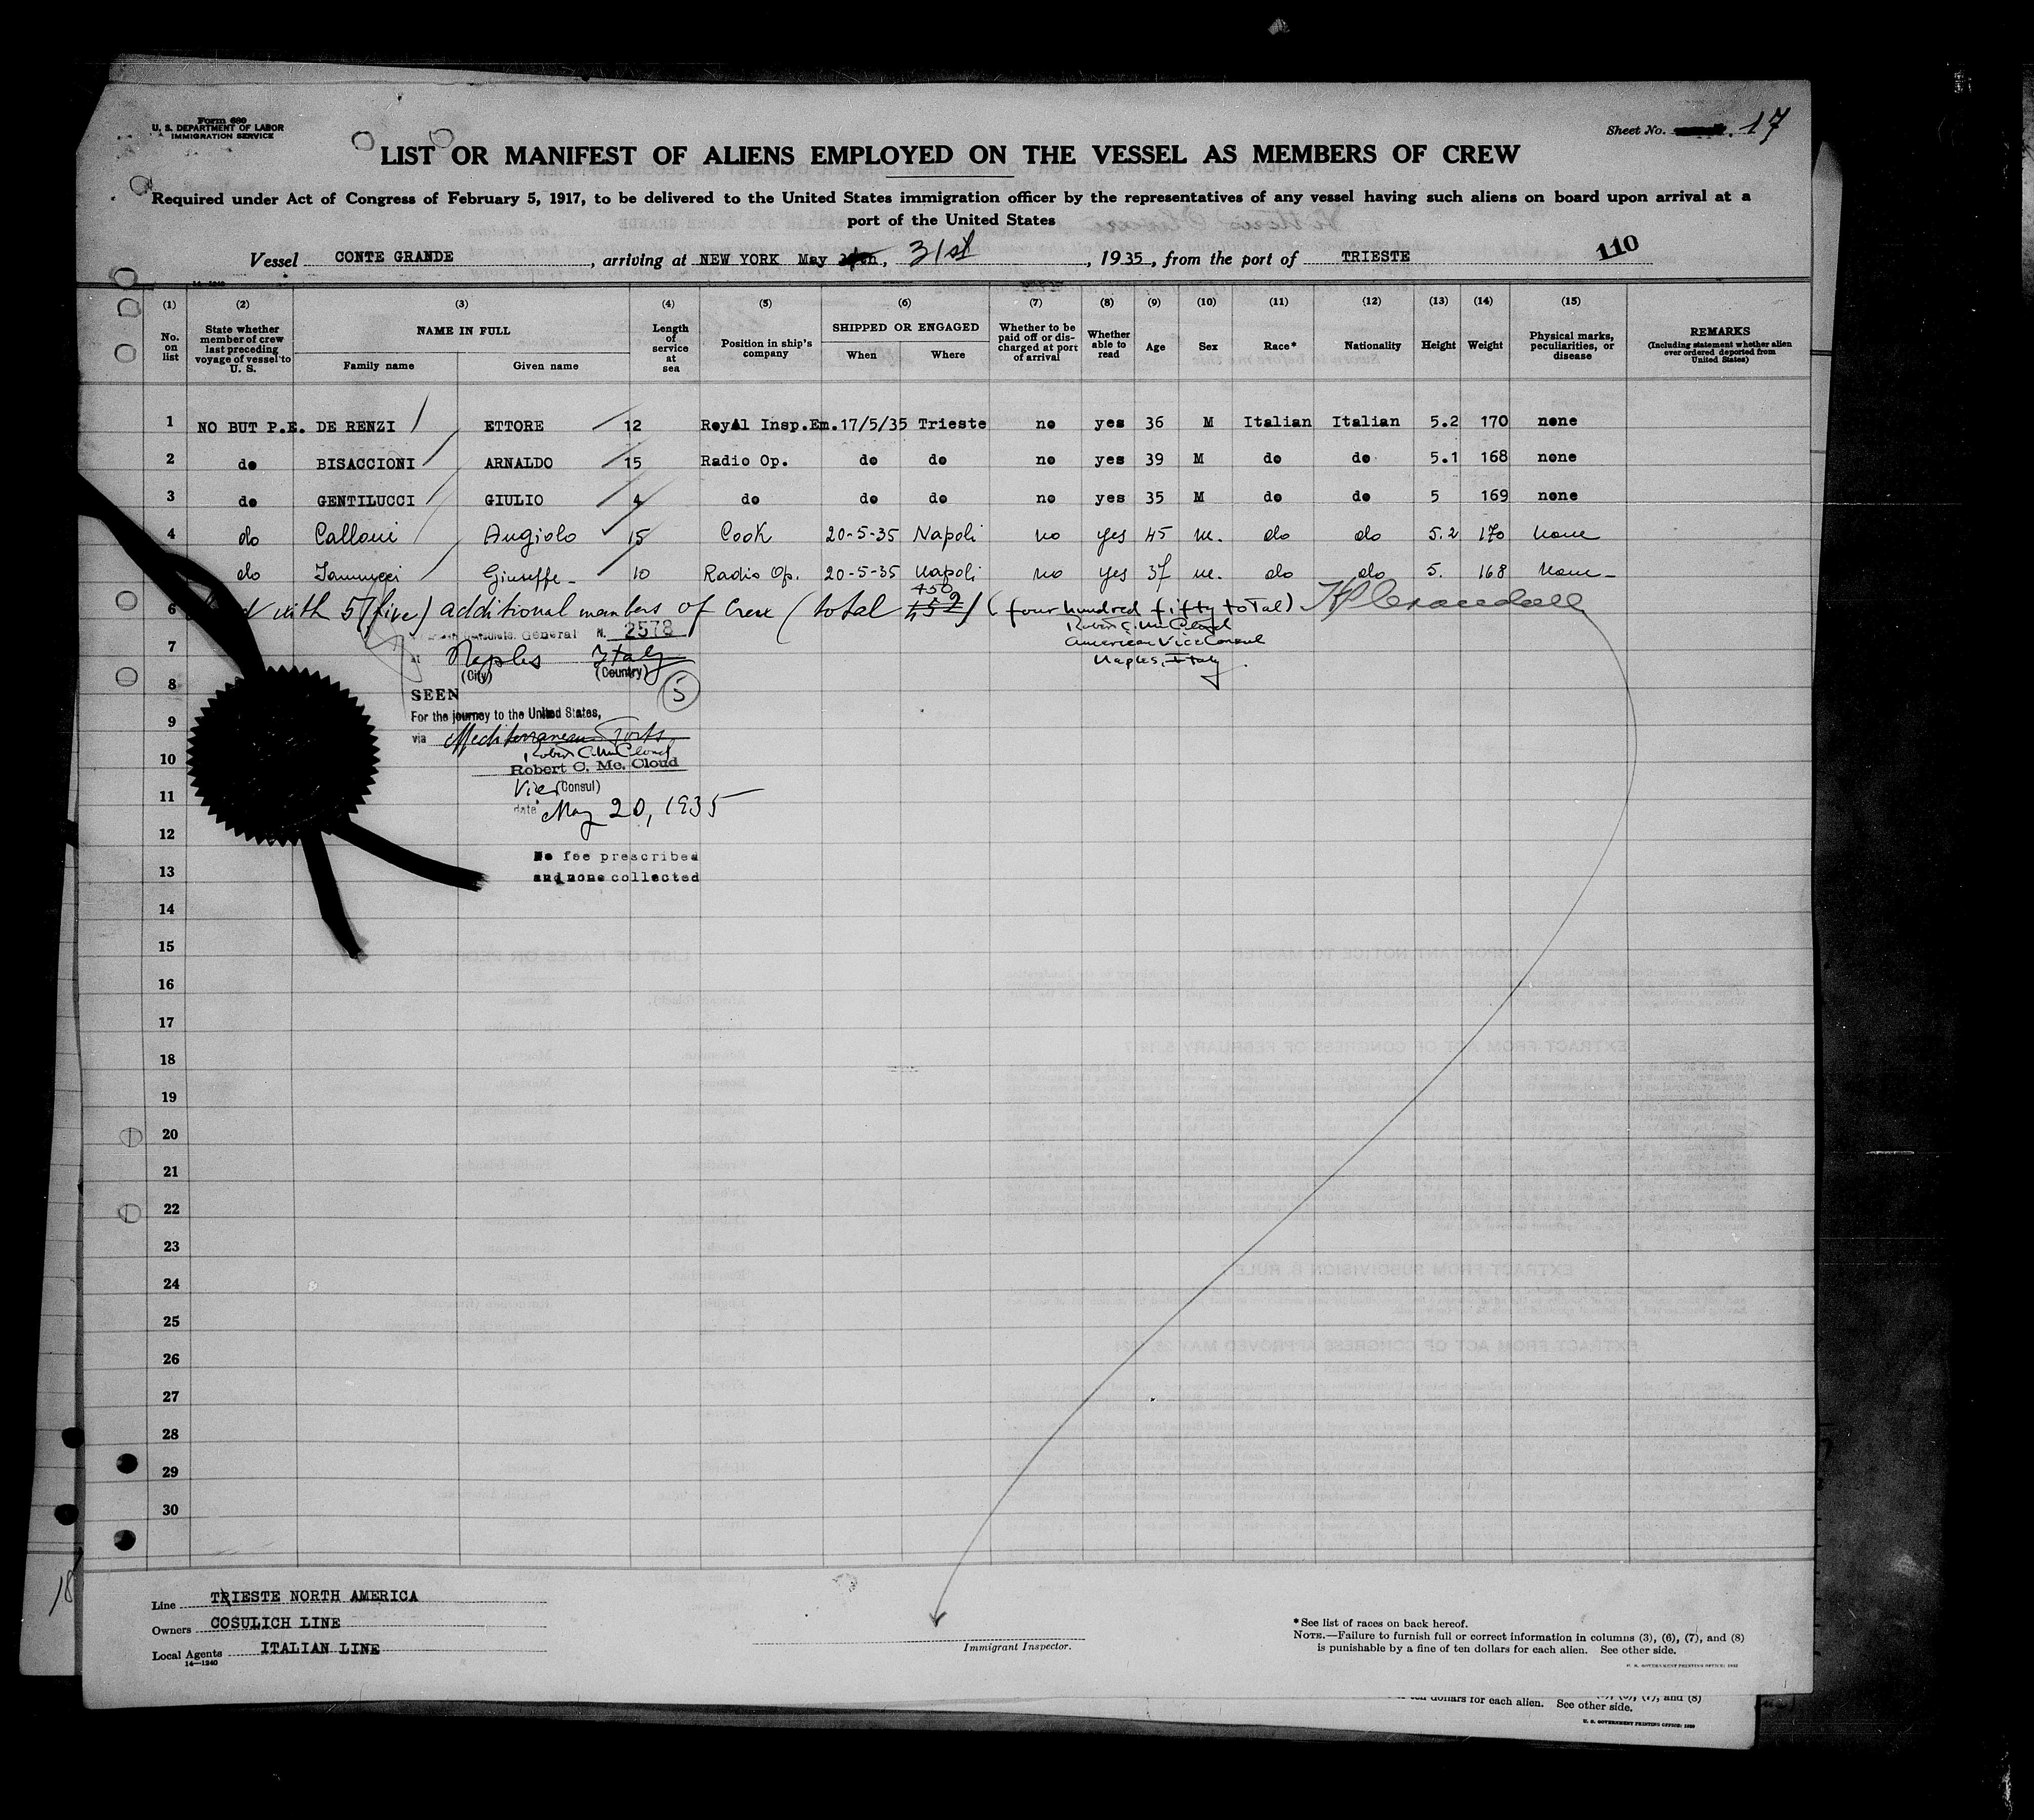 Form 680
U. S. DEPARTMENT OF LABOR
IMMIGRATION SERVICE
Sheet No. 17
LIST OR MANIFEST OF ALIENS EMPLOYED ON THE VESSEL AS MEMBERS OF CREW
Required under Act of Congress of February 5, 1917, to be delivered to the United States immigration officer by the representatives of any vessel having such aliens on board upon arrival at a
port of the United States
110
Vessel CONTE GRANDE, arriving at NEW YORK May 31st, 1935, from the port of TRIESTE
14-1240
(1) (2) (3) (4) (5) (6) (7) (8) (9) (10) (11) (12) (13) (14) (15)
No. on list
State whether member of crew last preceding voyage of vessel to U. S.
NAME IN FULL
Family name Given name
Length of service at sea
Position in ship's company
SHIPPED OR ENGAGED
When Where
Whether to be paid off or discharged at port of arrival
Whether able to read
Age
Sex
Race*
Nationality
Height
Weight
Physical marks, peculiarities, or disease
REMARKS
(Including statement whether alien ever ordered deported from United States)
1 NO BUT P.E. DE RENZI ETTORE 12 RoyAl Insp.Em. 17/5/35 Trieste no yes 36 M Italian Italian 5.2 170 none
2 do BISACCIONI ARNALDO 15 Radio Op. do do no yes 39 M do do 5.1 168 none
3 do GENTILUCCI GIULIO 4 do do do no yes 35 M do do 5 169 none
4 do Calloni Angiolo 15 Cook 20-5-35 Napoli no yes 45 m. do do 5.2 170 none
do Giuseffe 10 Radio Op. 20-5-35 Napoli no yes 37 m. do do 5. 168 none
6 with 5 (five) additional members of Crew (total 450) (four hundred fifty total)
Robert C. McCloud
American Vice Consul
Naples, Italy.
General N. 2578
7
at Naples Italy
(City) (Country)
8
SEEN
5
For the journey to the United States,
9
via Mediterranean Ports
Robert C. McCloud
10
Robert C. Mc. Cloud
Vice (Consul)
11
date May 20, 1935
12
No fee prescribed
and none collected
13
14
15
16
17
18
19
20
21
22
23
24
25
26
27
28
29
30
Line TRIESTE NORTH AMERICA
Owners COSULICH LINE
Local Agents ITALIAN LINE
14-1240
Immigrant Inspector.
* See list of races on back hereof.
NOTE.—Failure to furnish full or correct information in columns (3), (6), (7), and (8)
is punishable by a fine of ten dollars for each alien. See other side.
U. S. GOVERNMENT PRINTING OFFICE:
dollars for each alien. See other side.
U. S. GOVERNMENT PRINTING OFFICE:
18